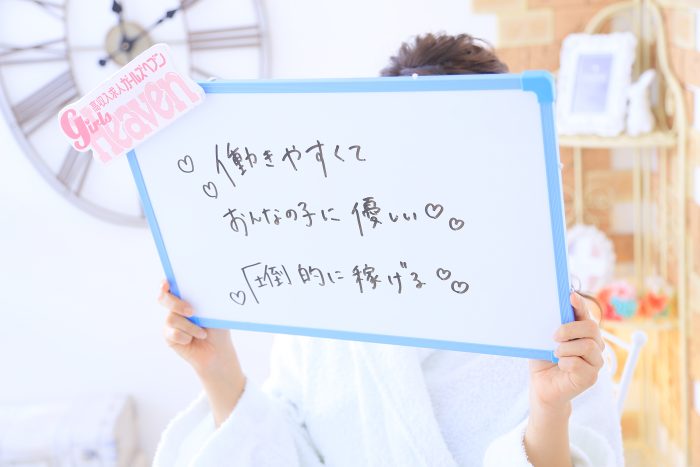 高収入求人ガールズヘブン
girls
heaven
働きやすくて
おんなの子に優しい
圧倒的に稼げる